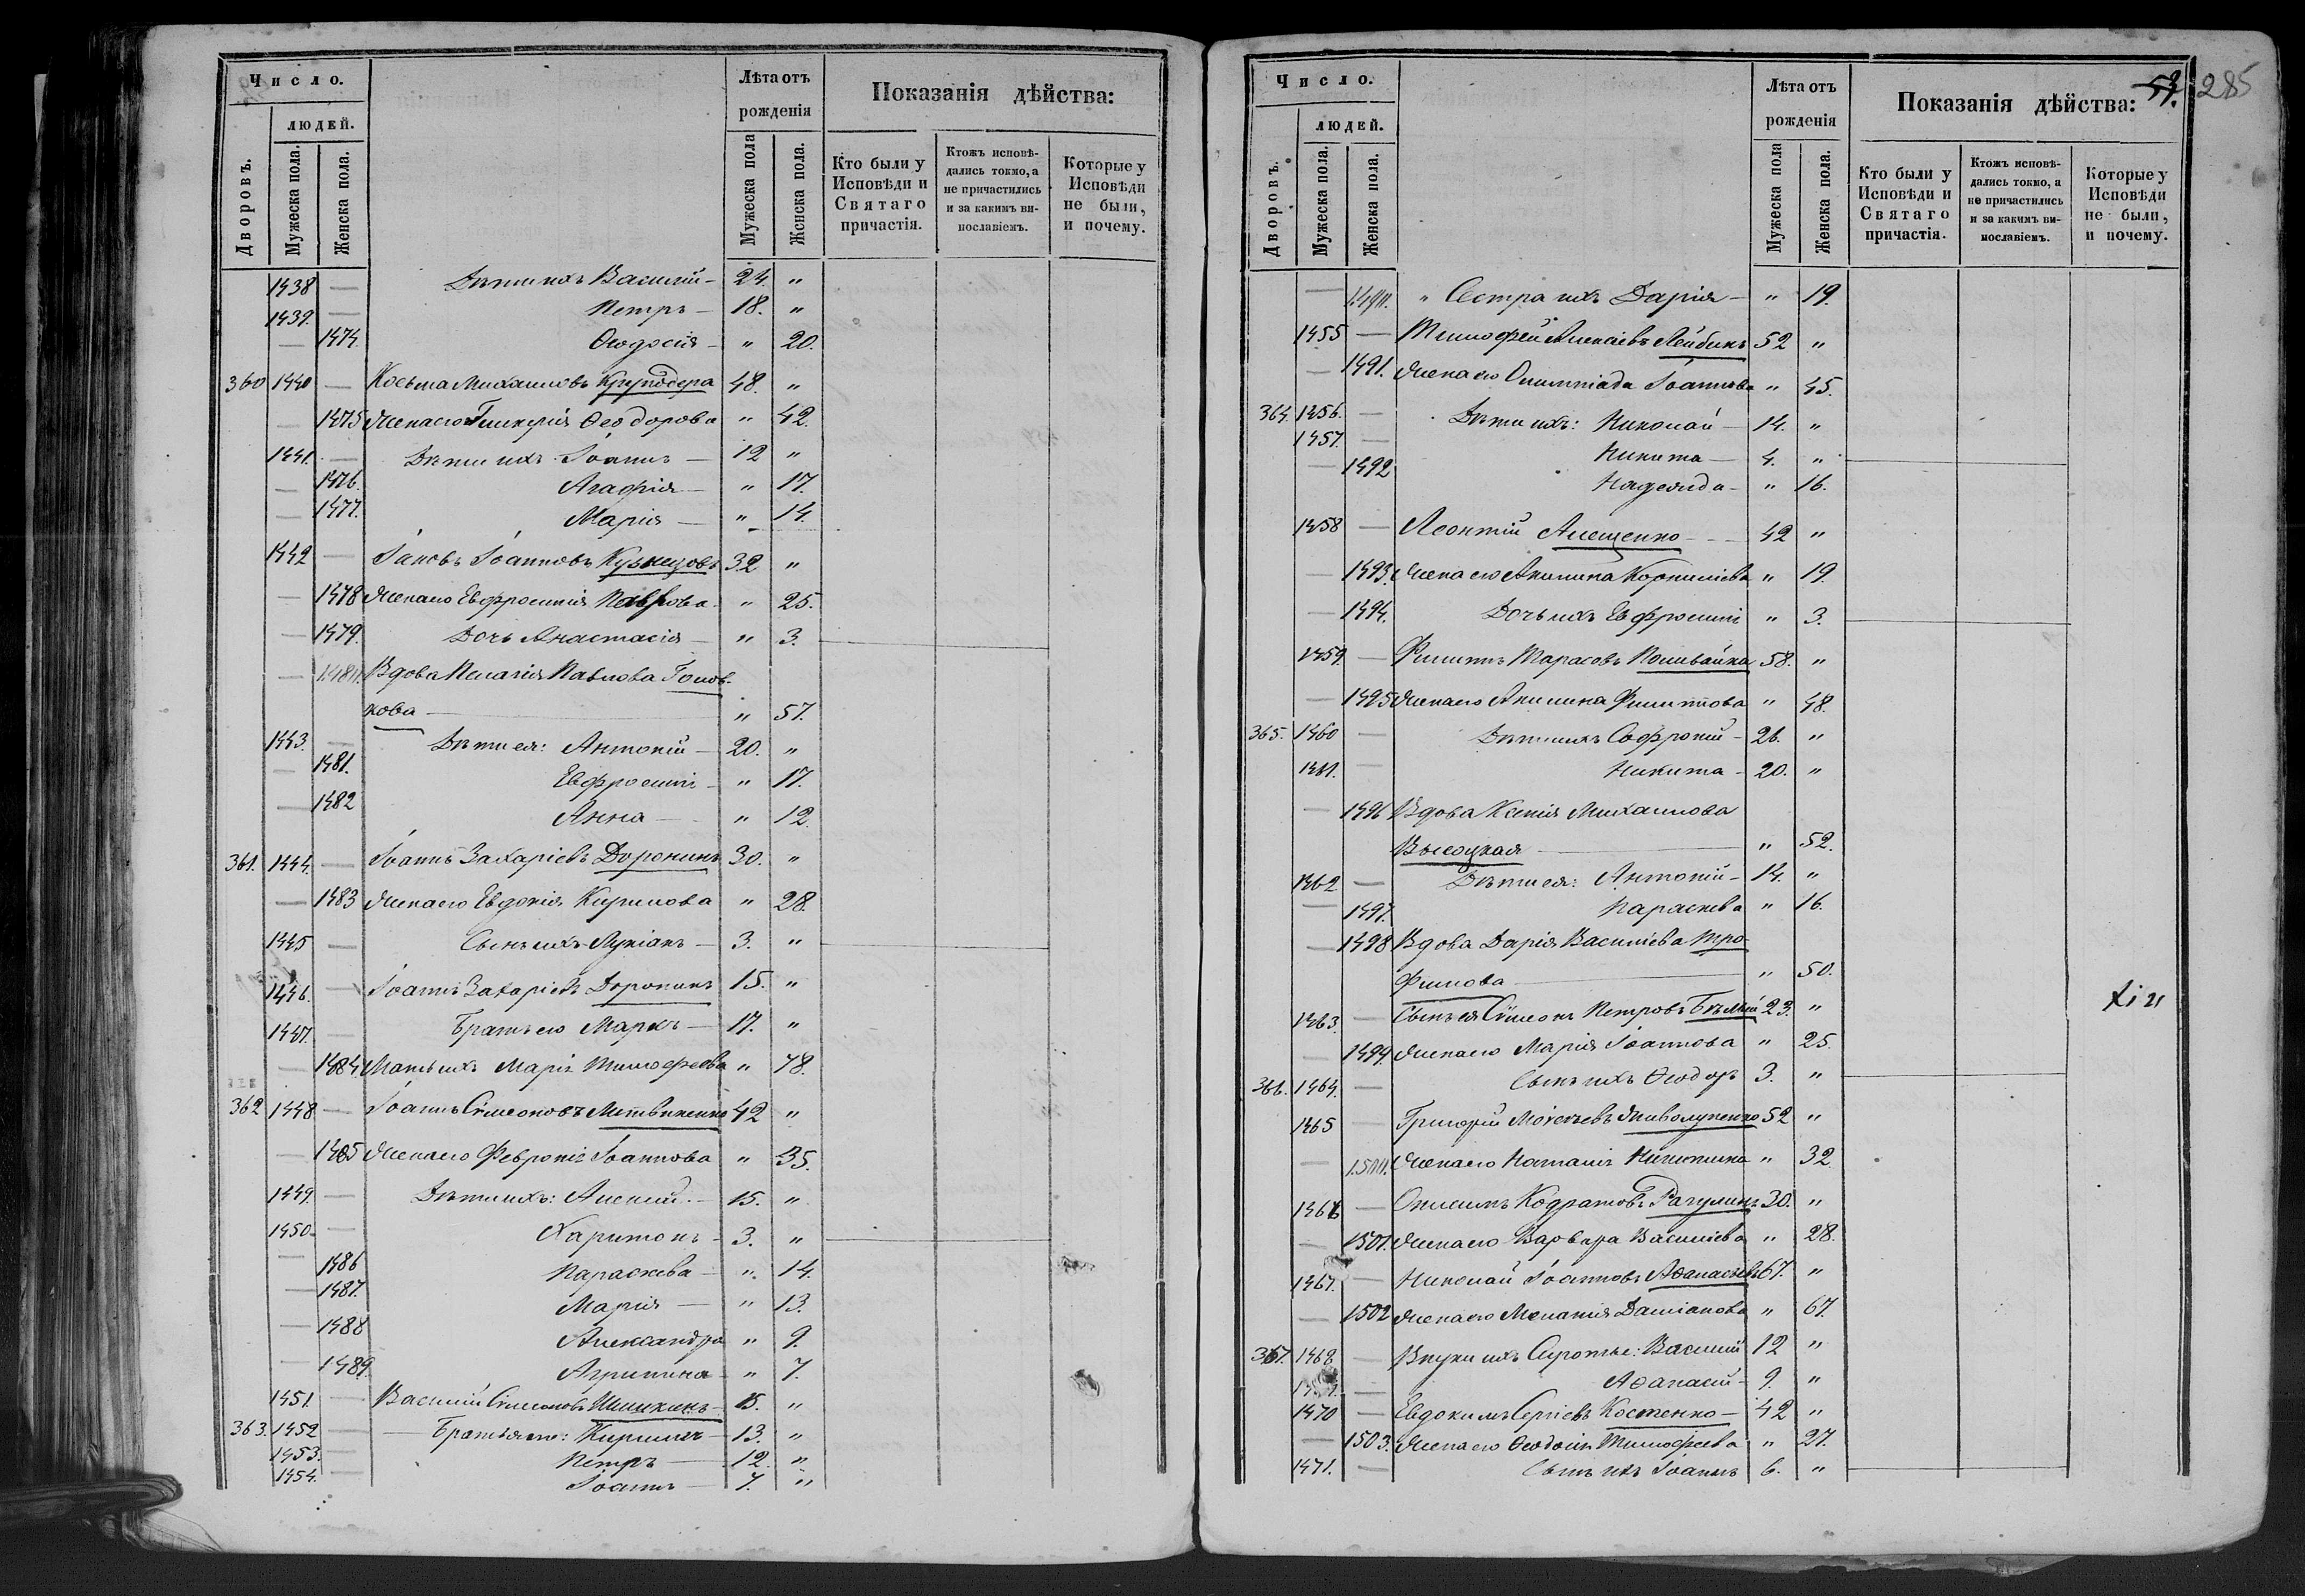 Число.
людей.
Дворовъ.
Мужеска пола.
Женска пола.
Лѣта отъ
рожденія
Мужеска пола
Женска пола.
Показанія дѣйства:
Кто были у
Исповѣди и
Святаго
причастія.
Ктожъ исповѣ-
дались токмо, а
не причастились
и за какимъ ви-
нословіемъ.
Которые у
Исповѣди
не были,
и почему.
1438 — Дѣти ихъ Василій — 24. "
1439. — Петръ — 18. "
— 1474. Ѳеодосія — " 20.
360 1440 — Косьма Михаиловъ 48. "
— 1475 Жена его Гликерія Ѳеодорова " 42.
1441. — Дѣти ихъ Іоаннъ — 12 "
— 1476. Агафія — " 17.
— 1477. Марія — " 14.
1442 — Іаковъ Іоанновъ Кузнецовъ 32 "
— 1478 Жена его Евфросинія Павлова " 25.
— 1479. Дочь Анастасія — " 3.
— 1480. Вдова Пелагія Павлова Голов-
кова — " 57.
1443. — Дѣти ея: Антоній — 20. "
— 1481. Евфросинія — " 17.
— 1482 Анна — " 12.
361. 1444. — Іоаннъ Захаріевъ Доронинъ 30. "
— 1483 Жена его Евдокія Кирилова " 28.
1445 — Сынъ ихъ Лукіанъ — 3. "
1446. — Іоаннъ Захаріевъ Доронинъ 15. "
1447. — Братъ его Маркъ — 17. "
— 1484 Мать ихъ Марія Тимофеева " 48.
362 1448 — Іоаннъ Сѵмеоновъ Литвиненко 42 "
— 1485 Жена его Февронія Іоаннова " 35.
1449. — Дѣти ихъ: Алексій — 15. "
1450. — Харитонъ — 3. "
— 1486 Параскева — " 14.
— 1487. Марія — " 13.
— 1488 Александра " 9.
— 1489. Агрипина — " 7.
1451. — Василій Сѵмеоновъ Шишкинъ — 15. "
363. 1452 — Братья его: Кириллъ — 13. "
1453. — Петръ — 12. "
1454. — Іоаннъ — 7. "
57. 285
Число.
людей.
Дворовъ.
Мужеска пола.
Женска пола.
Лѣта отъ
рожденія
Мужеска пола
Женска пола.
Показанія дѣйства:
Кто были у
Исповѣди и
Святаго
причастія.
Ктожъ исповѣ-
дались токмо, а
не причастились
и за какимъ ви-
нославіемъ.
Которые у
Исповѣди
не были,
и почему.
— 1490. " Сестра ихъ Дарія — " 19.
1455 — Тимофей Алексіевъ Лейбинъ 52 "
— 1491. Жена его Олимпіада Іоаннова " 45.
364. 1456. — Дѣти ихъ: Николай — 14. "
1457. — Никита — 4. "
— 1492 Надежда — " 16.
1458 — Леонтій Алещенко — 42 "
— 1493. Жена его Акилина Корниліева " 19.
— 1494. Дочь ихъ Евфросинія " 3.
1459. — Филиппъ Тарасовъ Поливайка 58. "
— 1495 Жена его Акилина Филиппова " 48.
365. 1460 — Дѣти ихъ Софроній — 26. "
1461. — Никита — 20. "
— 1496 Вдова Ксенія Михаилова
Высоцкая — " 52.
1462 — Дѣти ея: Антоній — 14. "
— 1497. Параскева " 16.
— 1498 Вдова Дарія Василіева Тро-
фимова — " 50.
1463. — Сынъ ея Сѵмеонъ Петровъ Бѣлый 23. "
— 1499. Жена его Марія Іоаннова " 25.
366. 1464. — Сынъ ихъ Ѳеодоръ 3. "
1465 — Григорій Моисеевъ 52 "
— 1500. Жена его Наталія Никитина " 32.
1466 — Онисимъ Кодратовъ Рагулинъ 30. "
— 1501. Жена его Варвара Василіева " 28.
1467. — Николай Іоанновъ Аѳанасьевъ 67. "
— 1502 Жена его Меланія Даміанова " 67.
367. 1468 — Внуки ихъ Сироты: Василій 12 "
— Аѳанасій — 9. "
1470 — Евдокимъ Сергіевъ Костенко — 42 "
— 1503. Жена его Ѳеодосія Тимофеева " 27.
1471. — Сынъ ихъ Іоаннъ 6. "